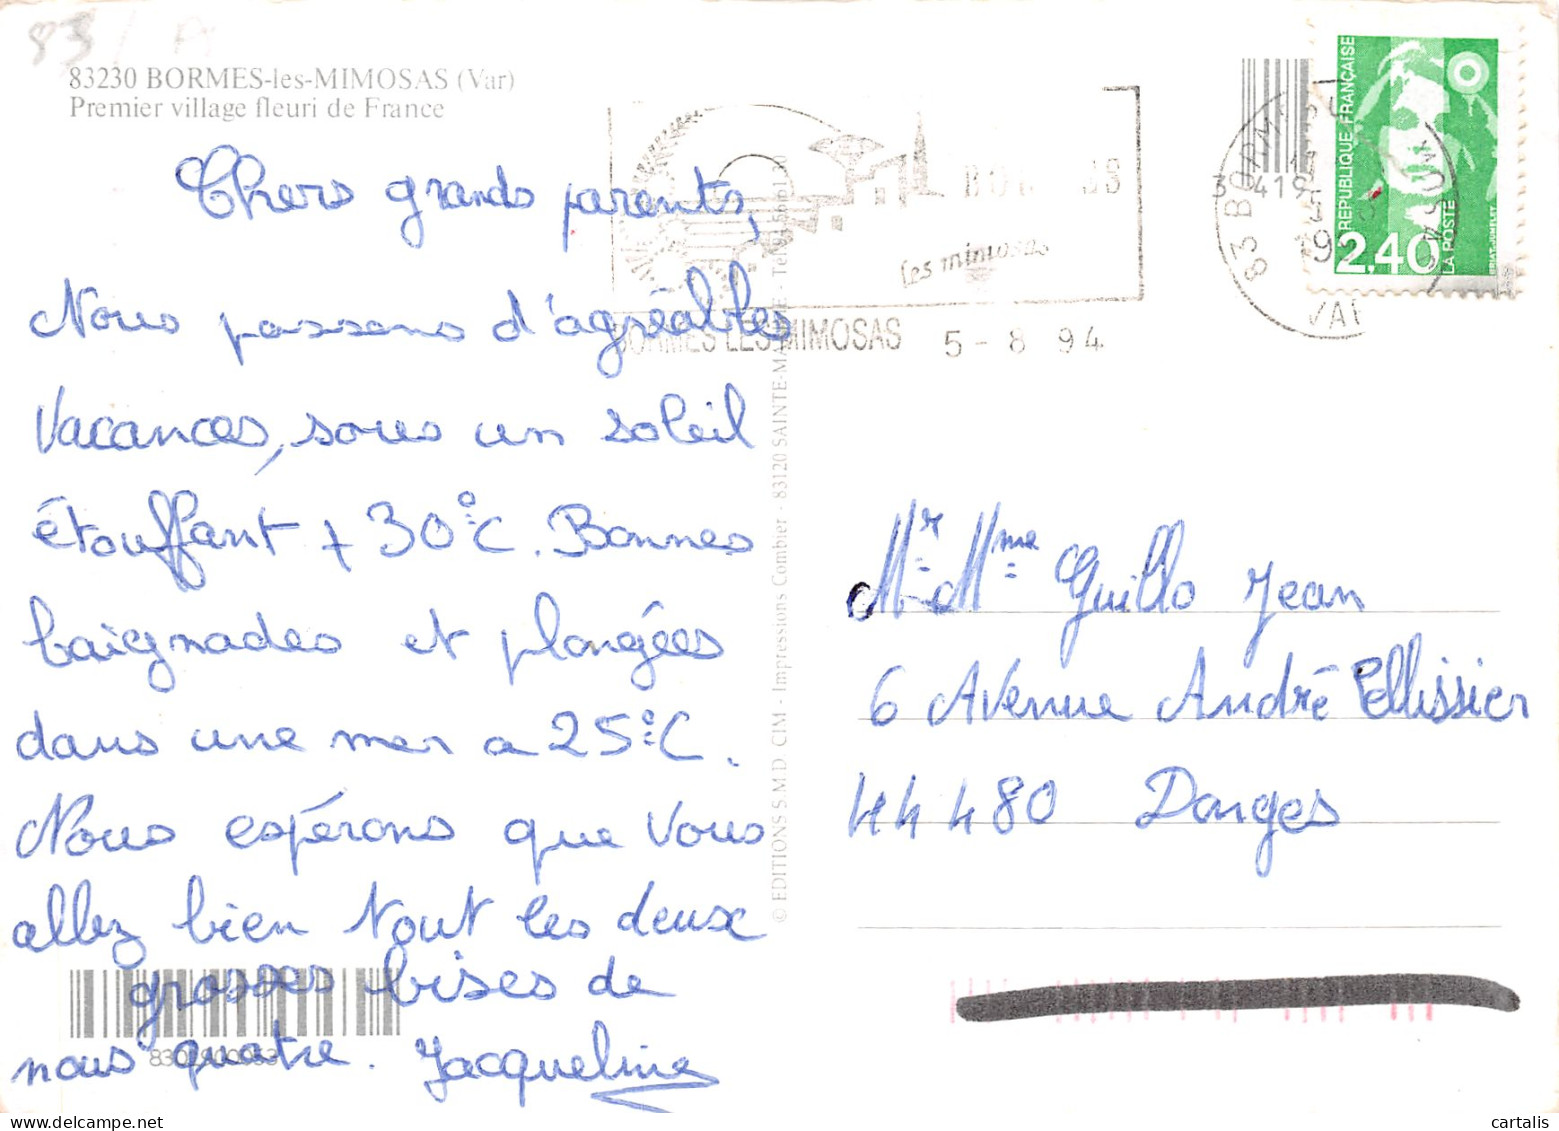 83/A
83230 BORMES-les-MIMOSAS (Var)
Premier village fleuri de France
Chers grands parents,
Nous passons d'agréables
Vacances, sous un soleil
étouffant + 30°C. Bonnes
baignades et plongées
dans une mer a 25°C.
Nous espérons que Vous
allez bien Tout les deux
grosses bises de
nous quatre. Jacqueline
© EDITIONS S.M.D. CIM - Impressions Combier - 83120 SAINTE-MAXIME - Tél.
les mimosas
BORMES LES MIMOSAS 5 - 8 94
83 BORMES
VAR
RÉPUBLIQUE FRANÇAISE
2,40
LA POSTE
Mr Mme Guillo Jean
6 Avenue André Pellissier
44480 Donges
cartalis